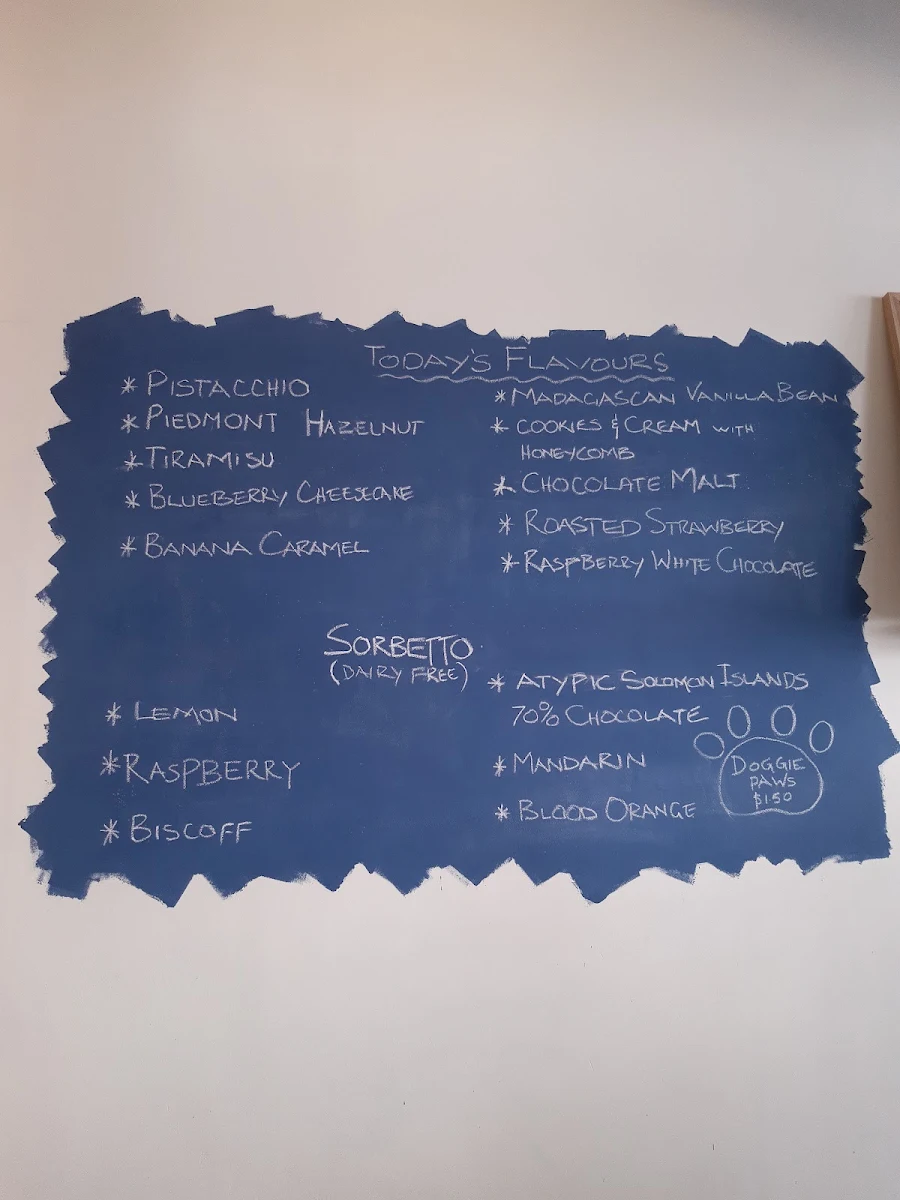 TODAY'S FLAVOURS
* PISTACCHIO
* PIEDMONT HAZELNUT
* TIRAMISU
* BLUEBERRY CHEESECAKE
* BANANA CARAMEL
* MADAGASCAN VANILLA BEAN
* COOKIES & CREAM WITH
HONEYCOMB
* CHOCOLATE MALT
* ROASTED STRAWBERRY
* RASPBERRY WHITE CHOCOLATE
SORBETTO
(DAIRY FREE)
* LEMON
* RASPBERRY
* BISCOFF
* ATYPIC SOLOMON ISLANDS
70% CHOCOLATE
* MANDARIN
* BLOOD ORANGE
DOGGIE
PAWS
$1.50